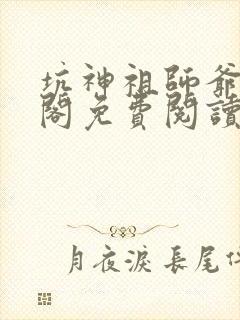 坑神祖師爺
閣免費閱讀
月夜淚長尾